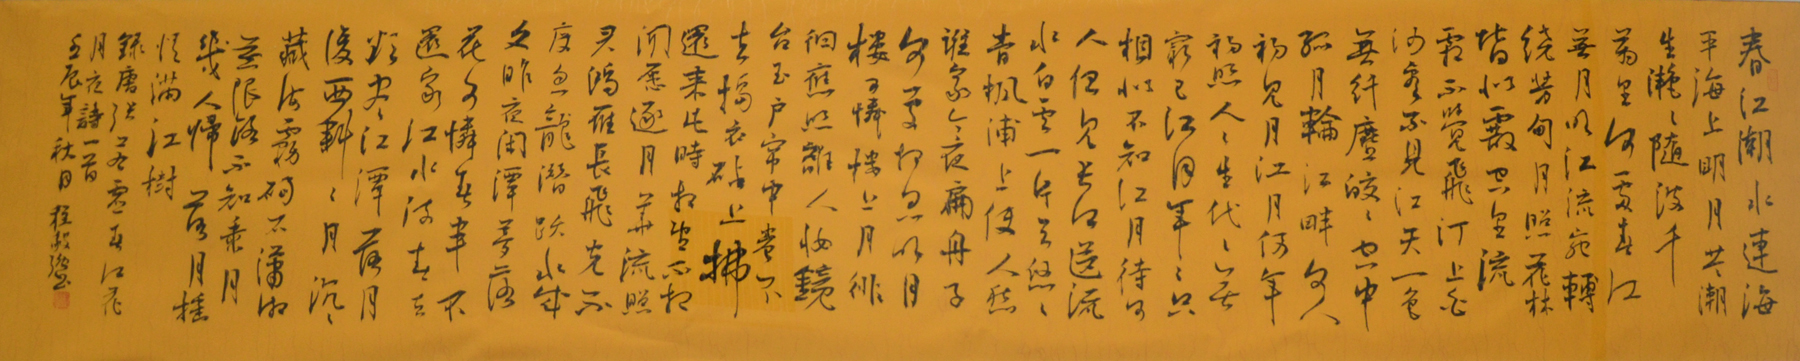 春江潮水連海
平海上明月共潮
生灧々隨波千
萬里何處春江
無月明江流宛轉
繞芳甸月照花林
皆似霰空里流
霜不覺飛汀上白
沙看不見江天一色
無纤塵皎々空中
孤月輪江畔何人
初見月江月何年
初照人々生代々無
窮已江月年々只
相似不知江月待何
人但見長江送流
水白雲一片去悠々
青楓浦上使人愁
誰家今夜扁舟子
何處相思明月
樓可憐樓上月徘
徊應照離人妝鏡
台玉户帘中卷不
去搗衣砧上拂
還来此時相望不相
聞愿逐月華流照
君鴻雁長飛光不
度魚龍潛躍水成
文昨夜閑潭夢落
花可憐春半不
還家江水流春去
欲盡々江潭落月
復西斜々月沉々
藏海霧碣石瀟湘
無限路不知乘月
幾人歸落月摇
情滿江樹
錄唐張若虚春江花
月夜詩一首
壬辰年秋日 程